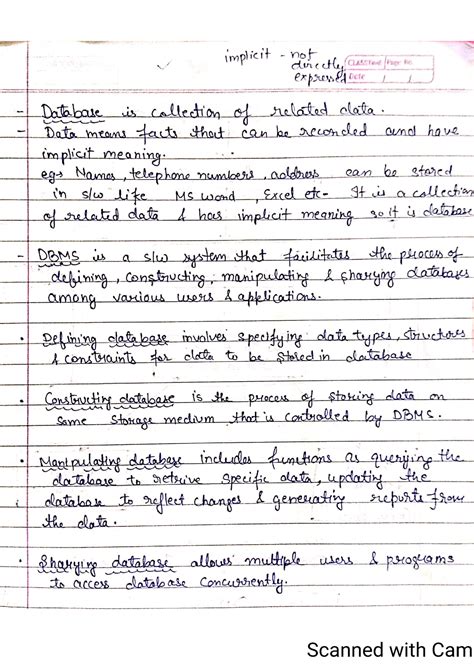 implicit - not
directly
expressed
Classmate Page No.
Date / /
- Database is collection of related data.
- Data means facts that can be recorded and have
implicit meaning.
eg→ Names, telephone numbers, address can be stored
in s/w life MS word, Excel etc- It is a collection
of related data & has implicit meaning so it is database
- DBMS is a s/w system that facilitates the process of
defining, constructing, manipulating & sharying databases
among various users & applications.
• Defining database involves specifying data types, structures
& constraints for data to be stored in database
• Constructing database is the process of storing data on
some storage medium that is controlled by DBMS.
• Manipulating database includes functions as querying the
database to retrive specific data, updating the
database to reflect changes & generating reports from
the data.
• Sharying database allows multiple users & programs
to access database concurrently.
Scanned with Cam